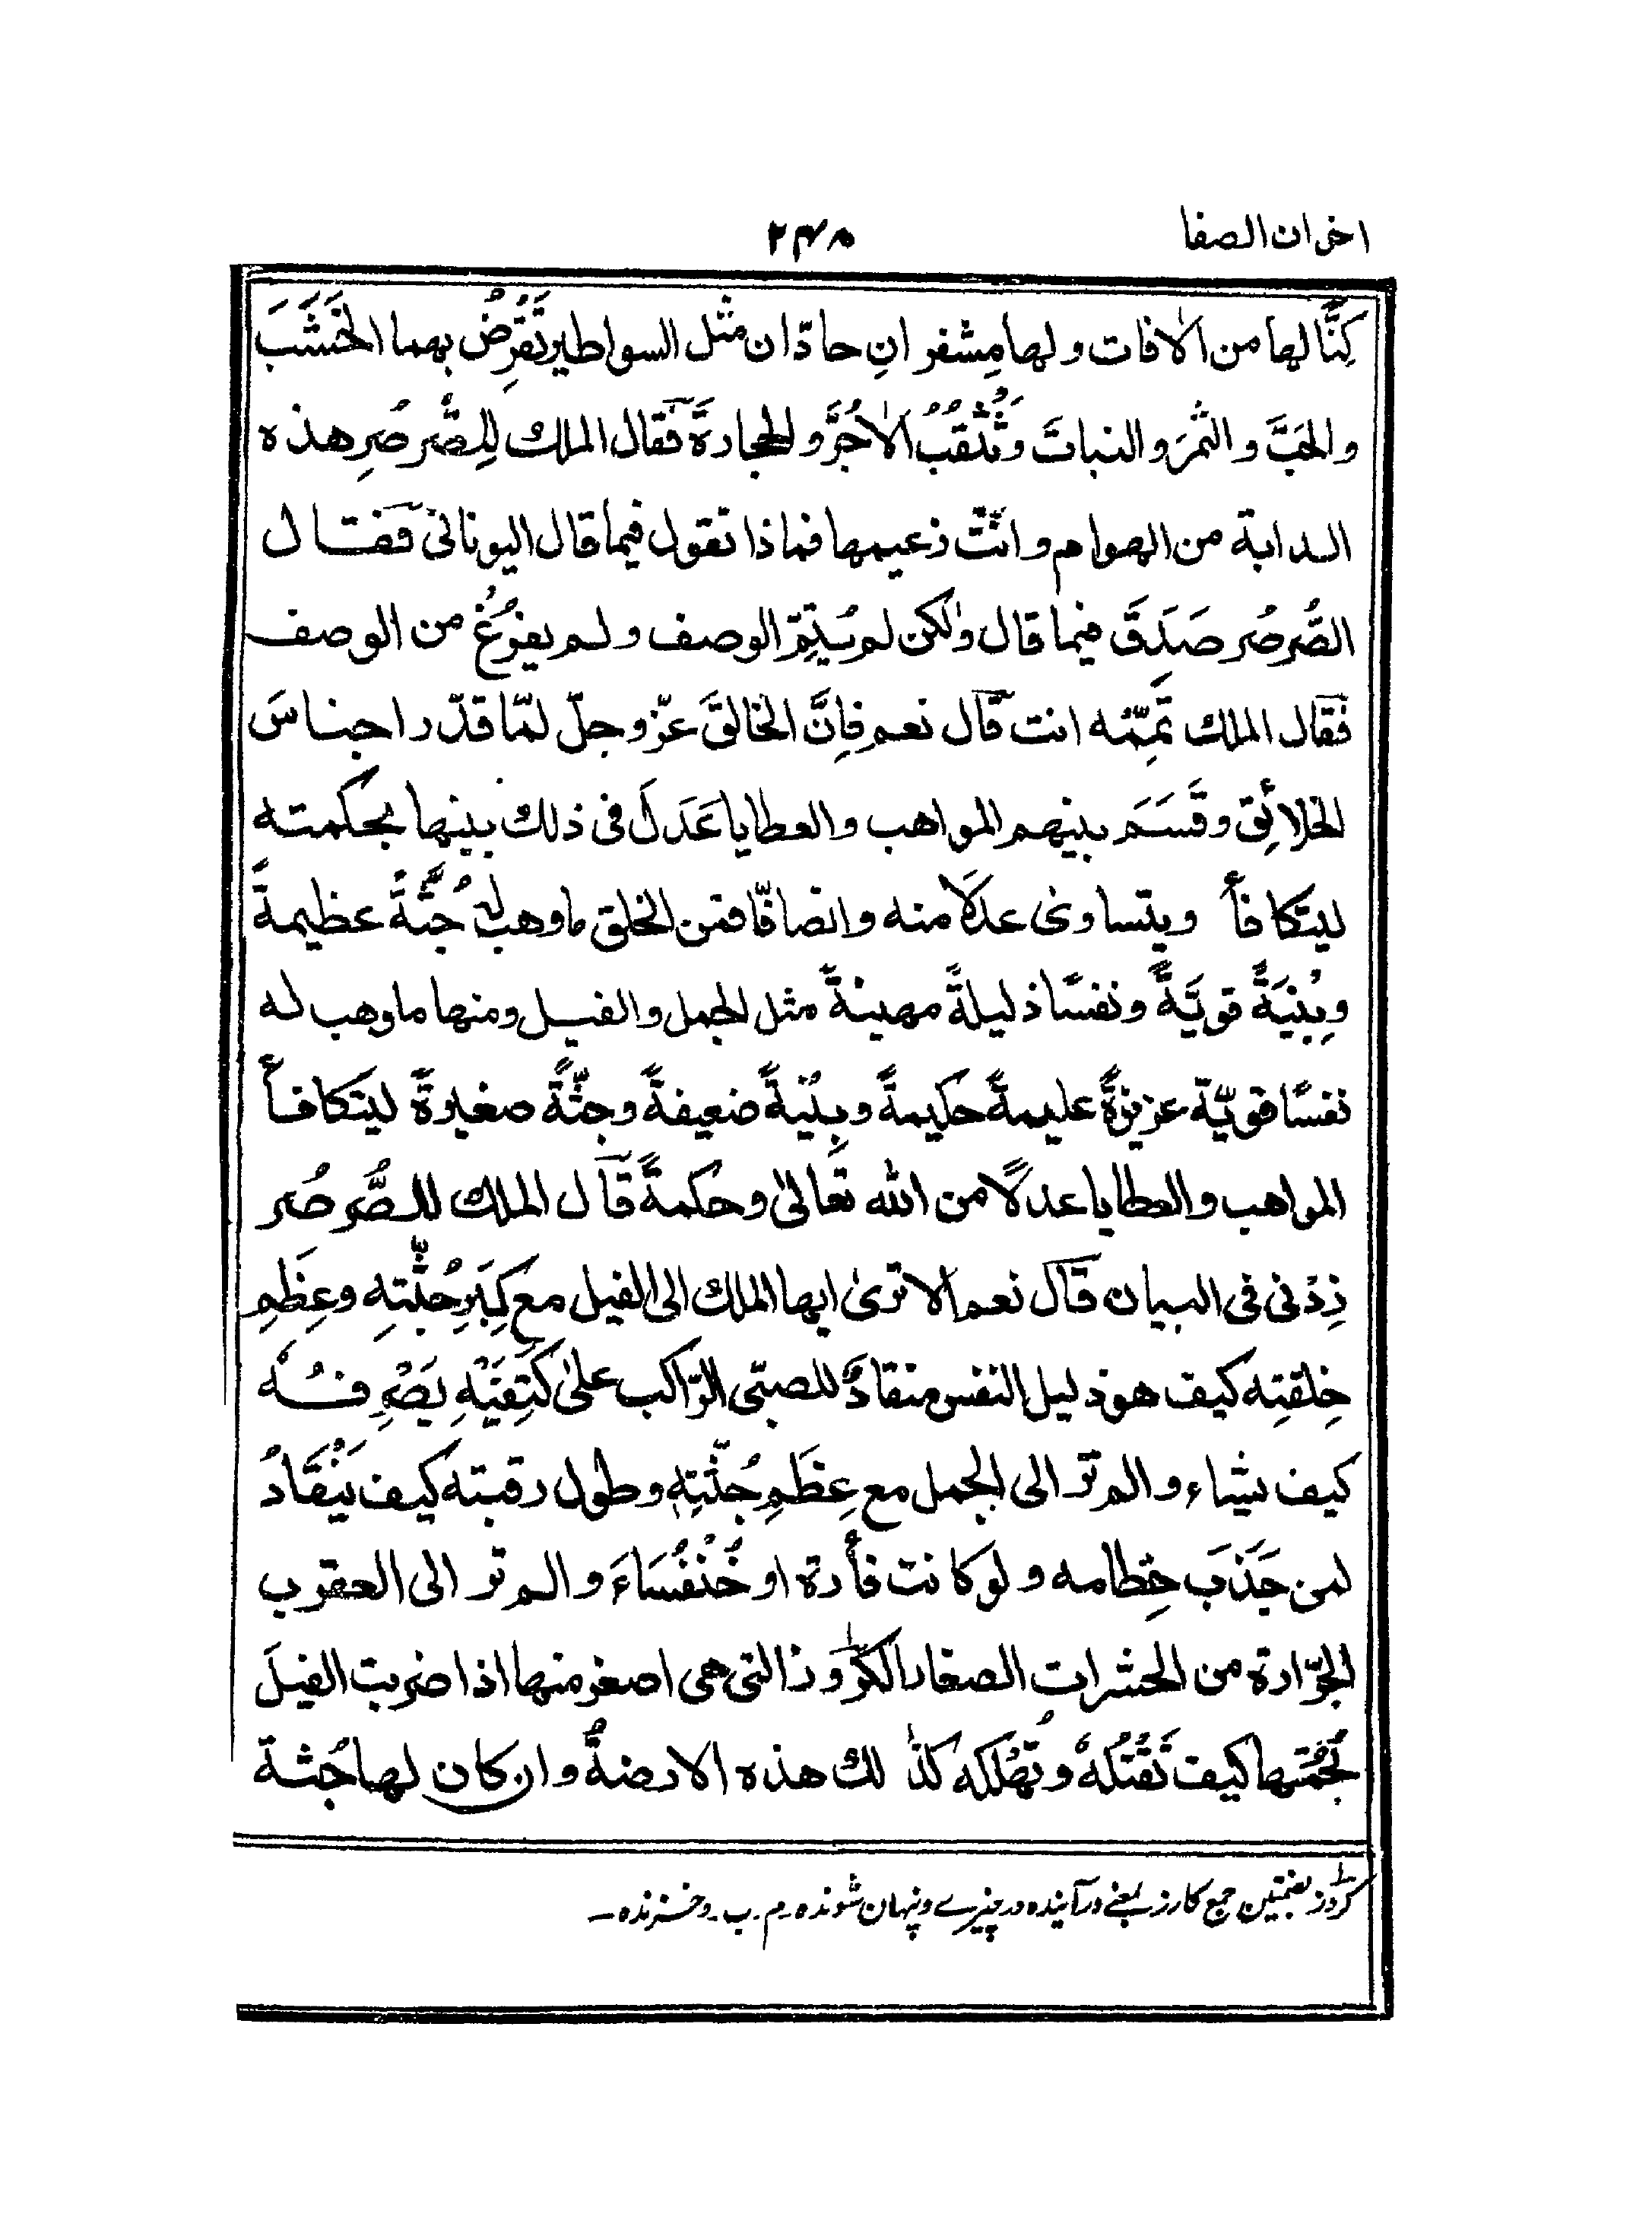 اخوان الصفا ۲۴۸
كِنًّا لها من الاٰفات ولها مِشفرانِ حادّان مثل السواطير تَقْرِضُ بهما الخَشَبَ
والحَبَّ والثمرَ والنباتَ وتَثْقُبُ الاٰجُرَّ والحجارةَ فقال الملك لِلصُّرصُرِ هذه
الدابة من الهوام وانتَ زعيمها فماذا تقول فيما قال اليونانى فقال
الصُّرصُر صَدَقَ فيما قال ولٰكن لم يُتِمّ الوصف ولم يفرُغْ من الوصف
فقال الملك تَمِّمْه انت قال نعم فاِنَّ الخالقَ عزّ وجلّ لمّا قدّر اجناسَ
الخلائق وقَسَمَ بينهم المواهب والعطايا عَدَلَ فى ذلك بينها بحكمته
ليتكافأ ويتساوىٰ عدلًا منه وانصافًا فمن الخلق ما وهب له جُثَّةً عظيمةً
وبِنْيَةً قويَّةً ونفسًا ذليلةً مهينةً مثل الجمل والفيل ومنها ما وهب له
نفسًا قويّة عزيزةً عليمةً حكيمةً وبِنْيةً ضعيفةً وجثّةً صغيرةً ليتكافأ
المواهب والعطايا عدلًا من الله تعالىٰ وحكمةً قال الملك للصُّرصُر
زِدْنى فى البيان قال نعم الا ترىٰ ايها الملك الى الفيل مع كِبَرِ جُثّتِه وعِظَمِ
خِلقتِه كيف هو ذليل النفس منقادٌ للصبىّ الرّاكب علىٰ كَتِفَيْهِ يَصْرِفُهٗ
كيف يشاء والم تر الى الجمل مع عِظَمِ جُثّتِهٖ وطول رقبته كيف يَنْقَادُ
لمن جَذَبَ خِطامه ولو كانت فأرة او خُنْفُسَاءَ والم تر الى العقرب
الجرّارة من الحشرات الصغار الكرُوز التى هى اصغر منها اذا ضربت الفيلَ
بحُمَتِها كيف تَقْتُلهٗ وتُهْلكه كذٰلك هذه الارضةُ وان كان لها جُثة
كرُوز بضمتين جمع كارز بمعنے درآينده در چيزے و پنهان شونده۔ م۔ ب۔ و خزنده۔